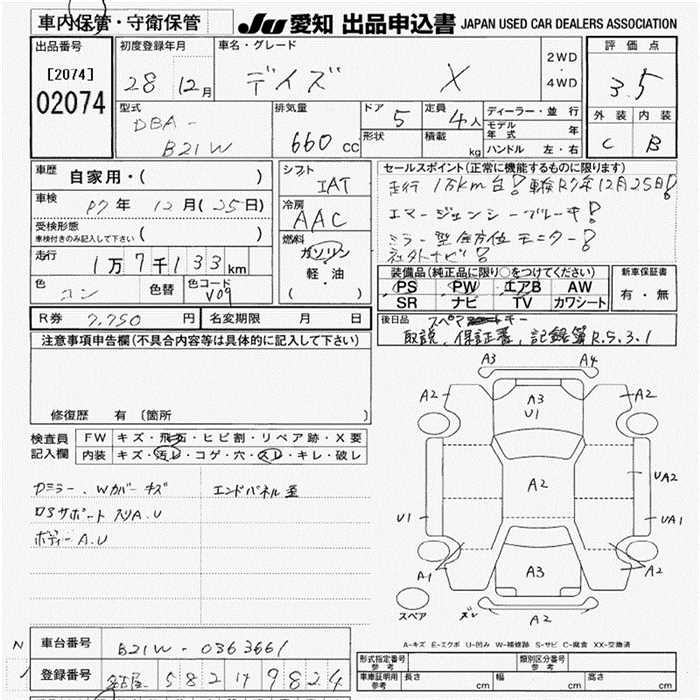 車内保管・守衛保管 JU 愛知 出品申込書 JAPAN USED CAR DEALERS ASSOCIATION
出品番号 初度登録年月 車名・グレード 評価点
[2074] 28 12月 デイズ X 2WD・4WD 3.5
02074
型式 DBA-B21W 排気量 660cc ドア 5 定員 4人 ディーラー・並行
形状 積載 kg モデル年式 年
ハンドル 左・右
外装 内装
C B
車歴 自家用・( )
車検 R7年 12月(25日)
受検形態 車検付きのみ記入して下さい ( )
走行 1万7千133km
色 コン 色替 色コード V09
シフト IAT
冷房 AAC
燃料 ガソリン・軽・油 ( )
セールスポイント(正常に機能するものに限ります)
走行1万km台! 車検R7年12月25日!
エマージェンシーブレーキ!
ミラー型全方位モニター!
社外ナビ!
装備品(純正品に限り○をつけてください) 新車保証書
PS PW エアB AW 有・無
SR ナビ TV カワシート
R券 7,750円 名変期限 月 日
後日品 スペアキー
取説、保証書、記録簿R.5.3.1
注意事項申告欄(不具合内容等は具体的に記入して下さい)
修復歴 有 [箇所 ]
検査員記入欄 FW キズ・飛石・ヒビ割・リペア跡・X要
内装 キズ・汚レ・コゲ・穴・スレ・キレ・破レ
Wカバーキズ エンドパネル歪
ボディーA.U
A3 A4
A2 A3 U1 A2
A2 UA2
U1 UA1
A1 A3 A2
スペア ズレ A2
A-キズ E-エクボ U-凹み W-補修跡 S-サビ C-腐食 XX-交換済
車台番号 B21W-0363661
登録番号 名古屋 582 9824
形式指定番号 参考 類別区分番号 参考
車庫証明用 参考 長さ cm 幅 cm 高さ cm